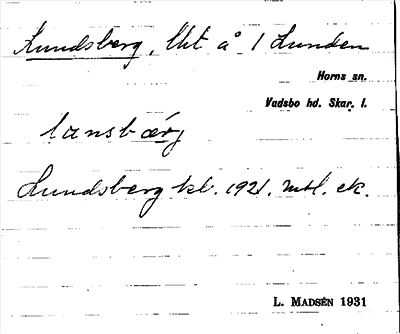 Lundsberg, Lht å 1 Lunden
Horns sn.
Vadsbo hd. Skar. l.
lansbærj
Lundsberg kl. 1921. mtl. ek.
L. MADSÉN 1931